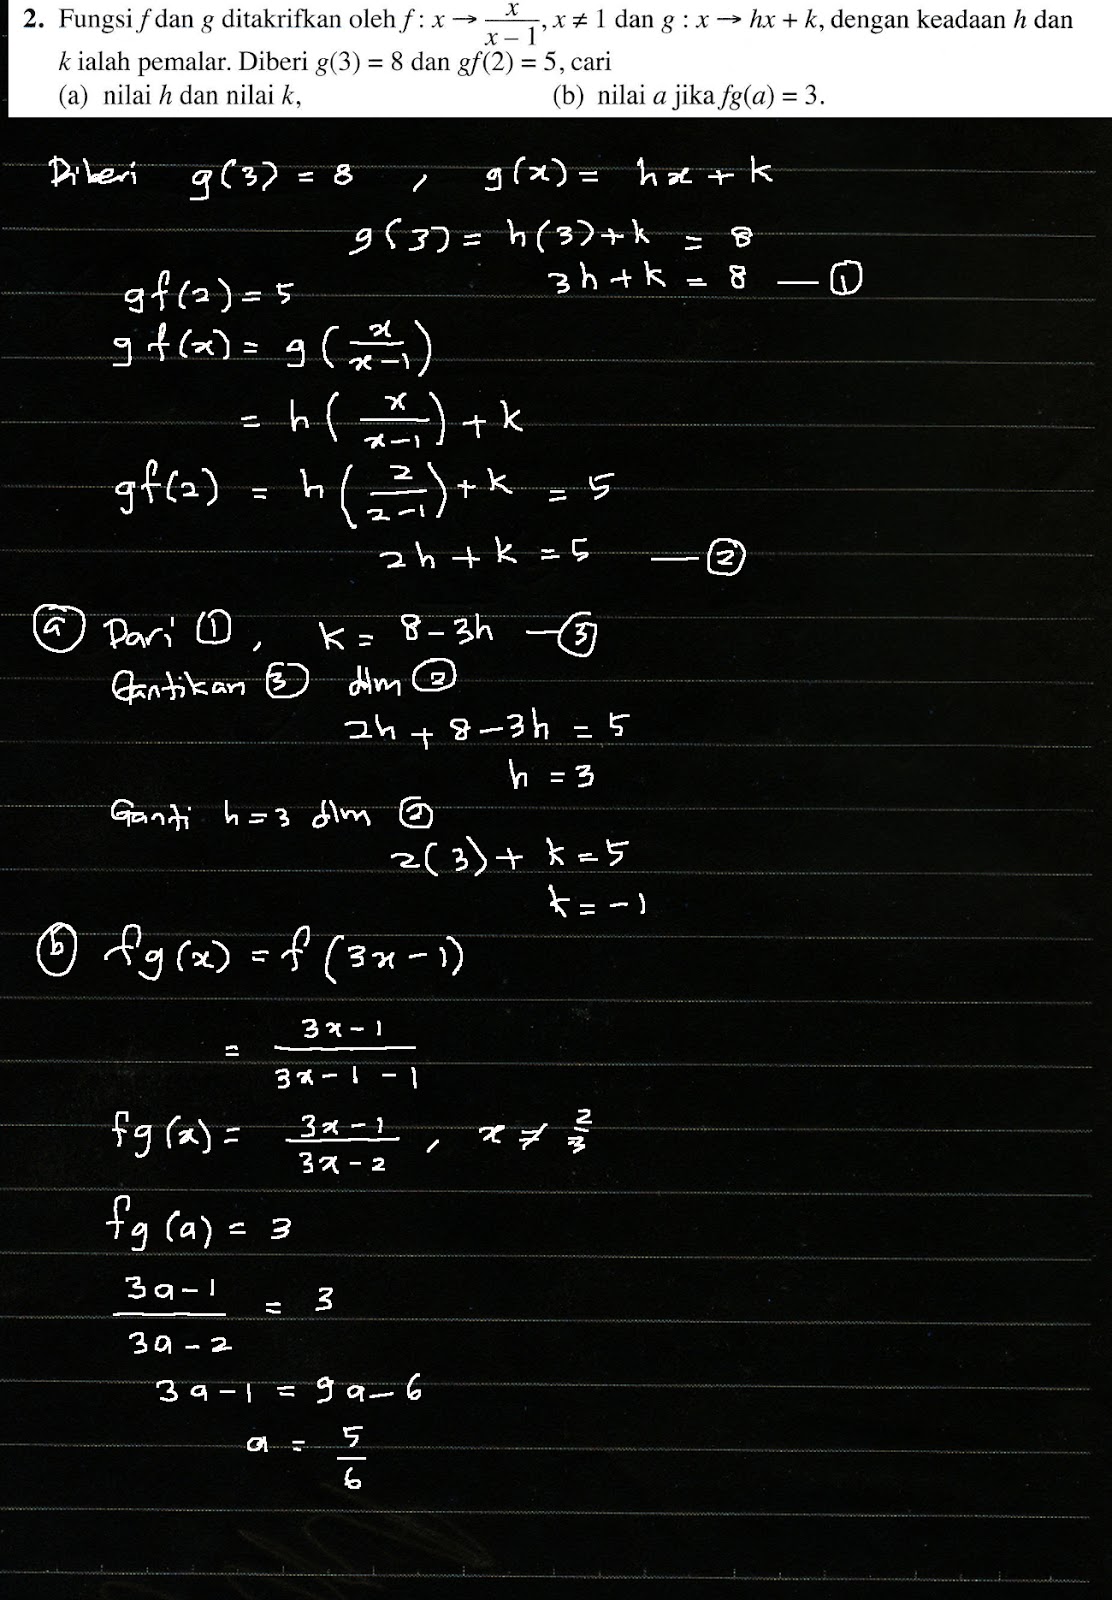 2. Fungsi f dan g ditakrifkan oleh f : x → x/(x − 1), x ≠ 1 dan g : x → hx + k, dengan keadaan h dan
k ialah pemalar. Diberi g(3) = 8 dan gf(2) = 5, cari
(a) nilai h dan nilai k, (b) nilai a jika fg(a) = 3.
Diberi g(3) = 8 , g(x) = hx + k
g(3) = h(3) + k = 8
3h + k = 8 — ①
gf(2) = 5
gf(x) = g(x/(x−1))
= h(x/(x−1)) + k
gf(2) = h(2/(2−1)) + k = 5
2h + k = 5 — ②
ⓐ Dari ①, k = 8 − 3h — ③
Gantikan ③ dlm ②
2h + 8 − 3h = 5
h = 3
Ganti h = 3 dlm ②
2(3) + k = 5
k = −1
ⓑ fg(x) = f(3x − 1)
= (3x − 1)/(3x − 1 − 1)
fg(x) = (3x − 1)/(3x − 2) , x ≠ 2/3
fg(a) = 3
(3a − 1)/(3a − 2) = 3
3a − 1 = 9a − 6
a = 5/6